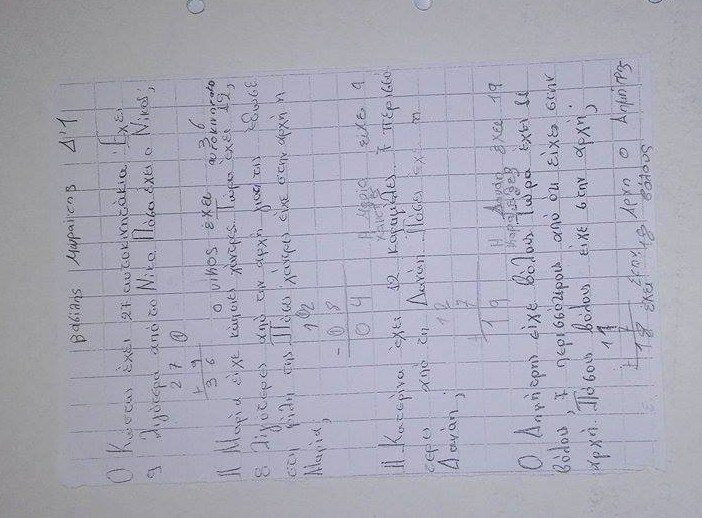 Βασίλης Μωραΐτης Δ'1
Ο Κώστας έχει 27 αυτοκινητάκια. Έχει
9 λιγότερα από το Νίκο. Πόσα έχει ο Νίκος;
27
+ 9
36
Ο Νίκος έχει 36
αυτοκινητα
Η Μαρία είχε κάποιες χάντρες. Τώρα έχει 12,
8 λιγότερες από την αρχή γιατί τις έδωσε
στη φίλη της. Πόσες χάντρες είχε στην αρχή η
Μαρία;
12
- 8
04
Η Μαρία είχε 4
χάντρες
Η Κατερίνα έχει 12 καραμέλες 7 περισσό
τερες από τη Δανάη. Πόσες έχει η
Δανάη;
12
+ 7
19
Η Δανάη έχει 19
καραμέλες
Ο Δημήτρης είχε βόλους. Τώρα έχει 11
βόλους, 7 περισσότερους από ότι είχε στην
αρχή. Πόσους βόλους είχε στην αρχή;
11
+ 7
18
έχει στην Αρχη Ο Δημήτρης
18 βόλους